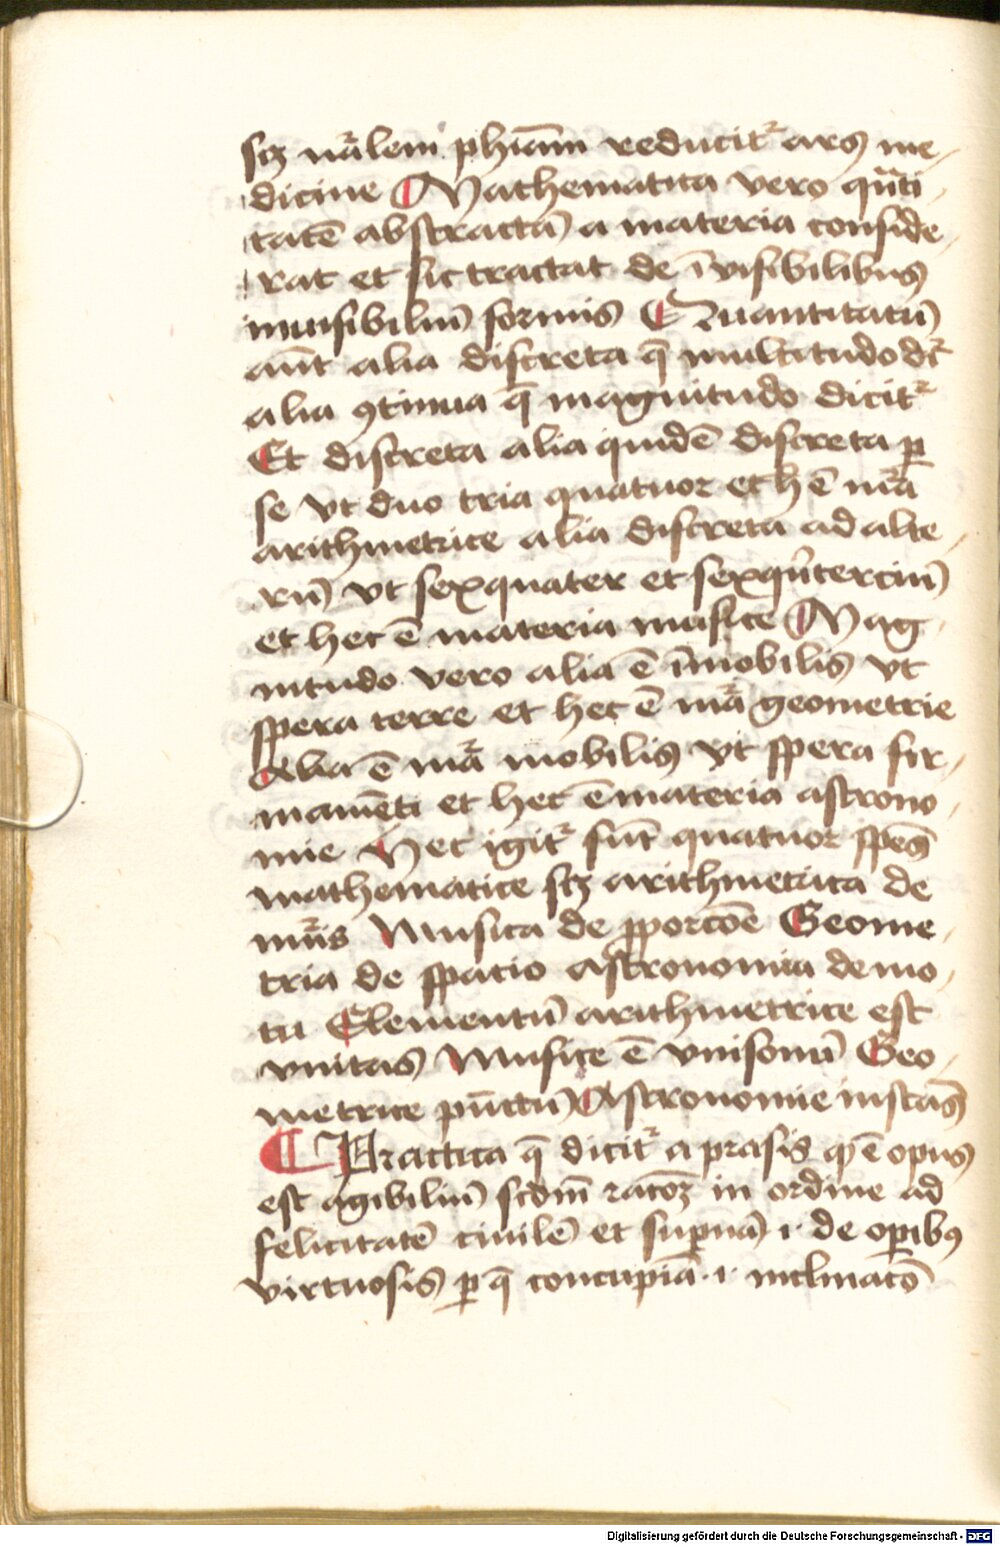 scꝫ nālem phiām reducit᷑ ars me-
dicine Mathematica vero qn̄ti-
tatē abstractā a materia conside-
rat et sic tractat de īvisibilibus
inuisibiliū formis Quantitatū
aūt alia discreta q̄ multitudo dr̄
alia ꝯtinua q̄ magnitudo dicit᷑
Et discreta alia quidē discreta ꝑ
se vt duo tria quatuor et h̄ ē mr̄a
arithmetrice alia discreta ad alte-
rū vt sexquater et sexqͥterciū
et hec ē materia musice Mag-
nitudo vero alia ē īmobilis vt
spera terre et hec ē mr̄a geometrie
Alia ē mr̄a mobilis vt spera fir-
mamēti et hec ē materia astrono-
mie Hec igit᷑ sūt quatuor sp̄es
mathematice scꝫ arithmetrica de
nūis Musica de ꝓporcōe Geome-
tria de spacio astronomia de mo-
tu Elementū arithmetrice est
vnitas Musice ē vnisonū Geo-
metrice pūctū Astronomie instās
Practica q̄ dicit᷑ a praxis ꝙ ē opus
est agibiliū scdm̄ racōꝫ in ordine ad
felicitatē ciuilē et supnā .i. de oꝑibꝰ
virtuosis ꝑ q̄ concupīa .i. inclinacō